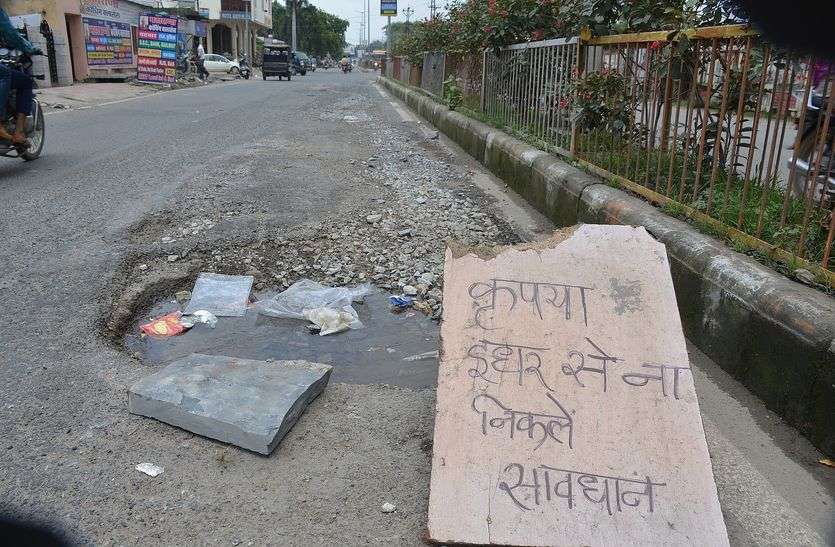 कृपया
इधर से ना
निकलें
सावधान